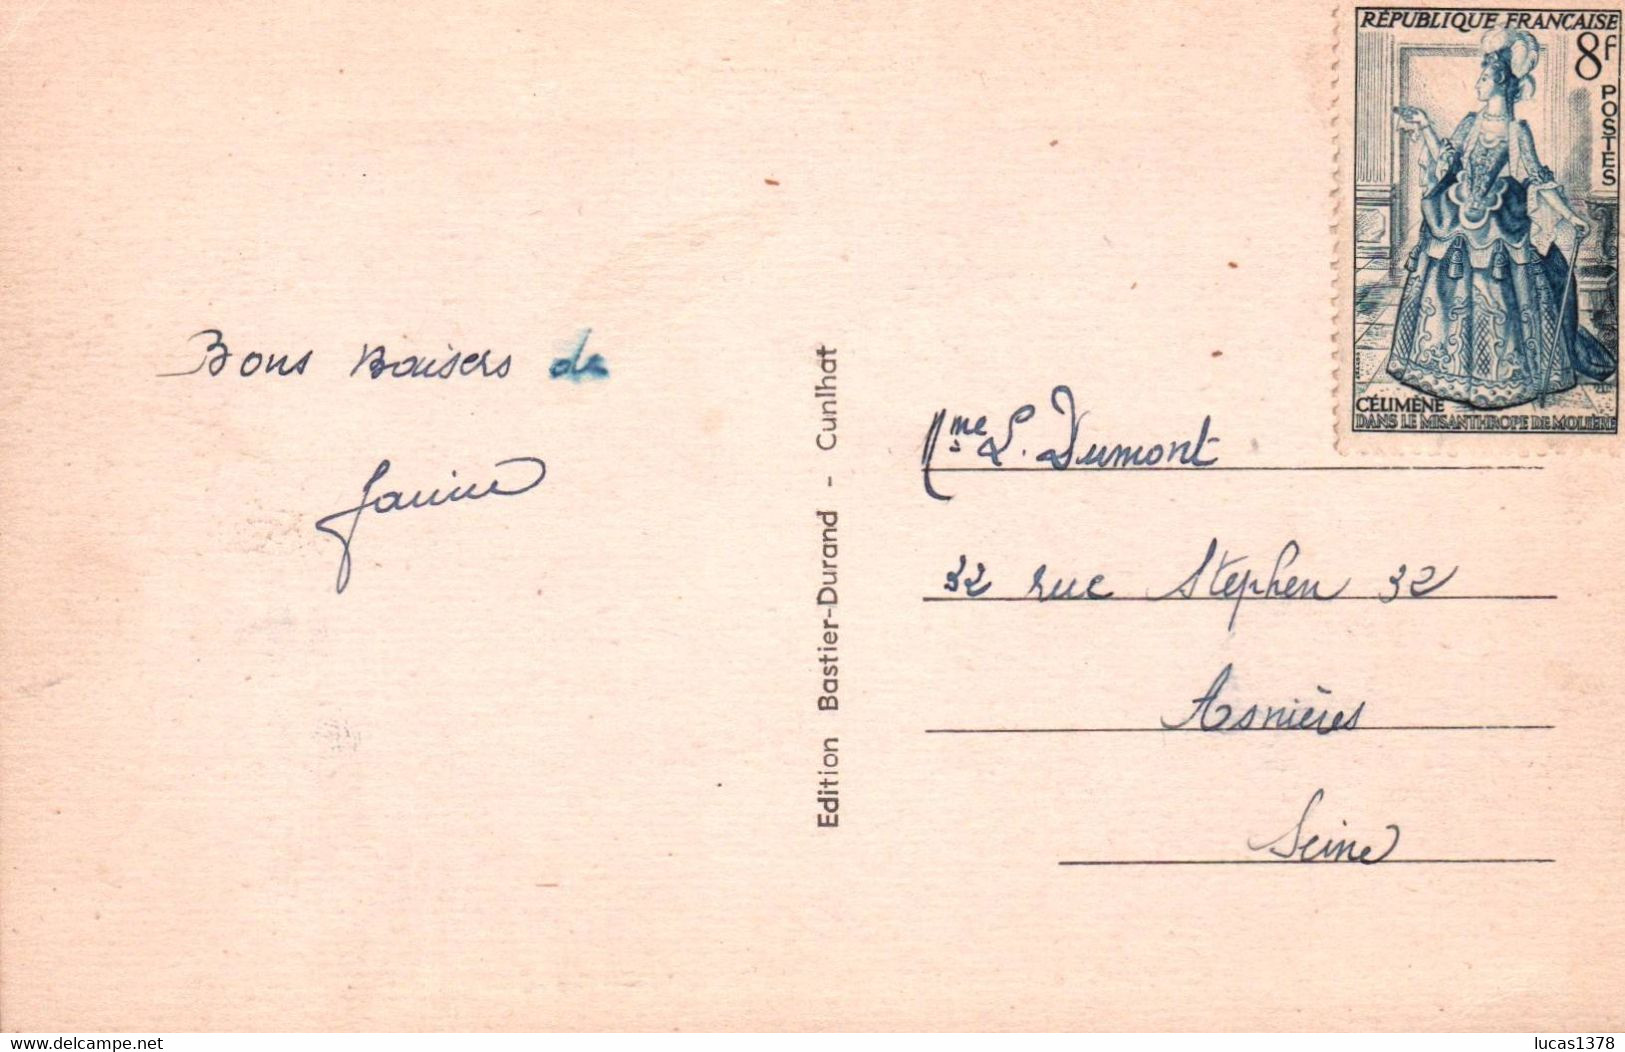 RÉPUBLIQUE FRANÇAISE
8f
POSTES
CÉLIMÈNE
DANS LE MISANTHROPE DE MOLIÈRE
Bons Baisers de
Janine
Edition Bastier-Durand - Cunlhat
Mme L. Dumont
32 rue Stephen 32
Asnières
Seine
www.delcampe.net
lucas1378